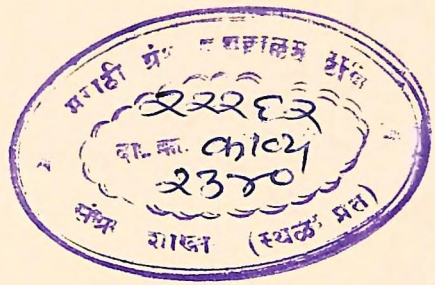 मराठी ग्रंथ संग्रहालय ठाणे
२२२६२
दा. क्र. काव्य
२३४०
शाखा (स्थळ प्रत)